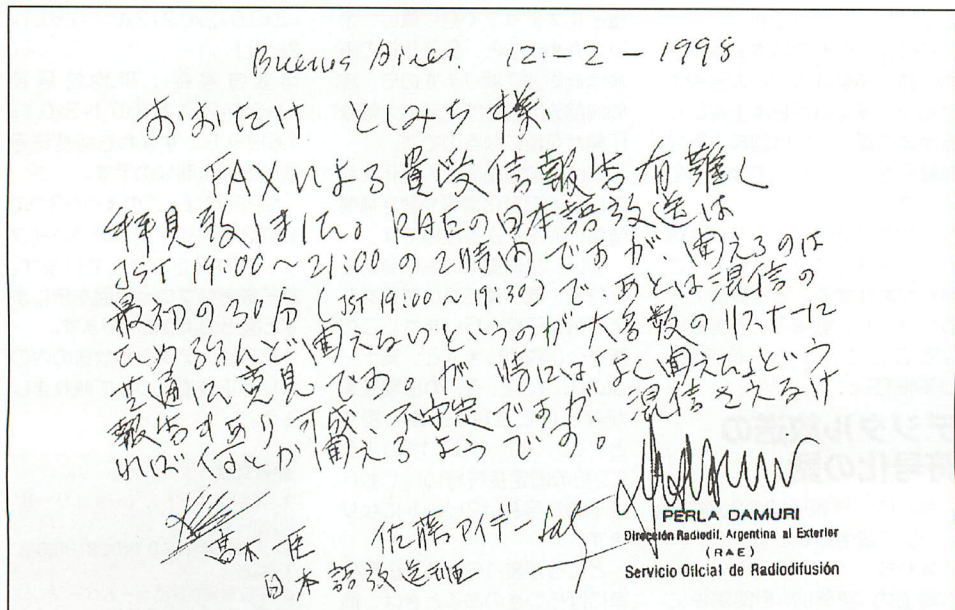 Buenos Aires, 12-2-1998
おおたけ とみち様
FAXによる貴受信報告有難く
拝見致しました。RAEの日本語放送は
JST 19:00〜21:00の2時間ですが、聞えるのは
最初の30分(JST 19:00〜19:30)で あとは混信の
ためほとんど聞えないというのが大多数のリスナーに
共通した意見です。が 時には「よく聞えた」という
報告もあり 可成り不安定ですが 混信さえなけ
れば 何とか聞えるようです。
高木 佐藤
日本語放送
PERLA DAMURI
Dirección Radiodif. Argentina al Exterior
(RAE)
Servicio Oficial de Radiodifusión
デジタル放送の
符号化の